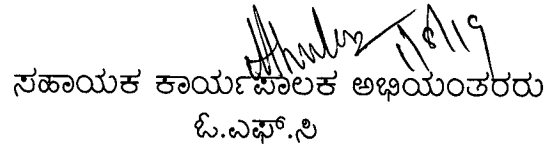 1/8/19
ಸಹಾಯಕ ಕಾರ್ಯಪಾಲಕ ಅಭಿಯಂತರರು
ಓ.ಎಫ್.ಸಿ